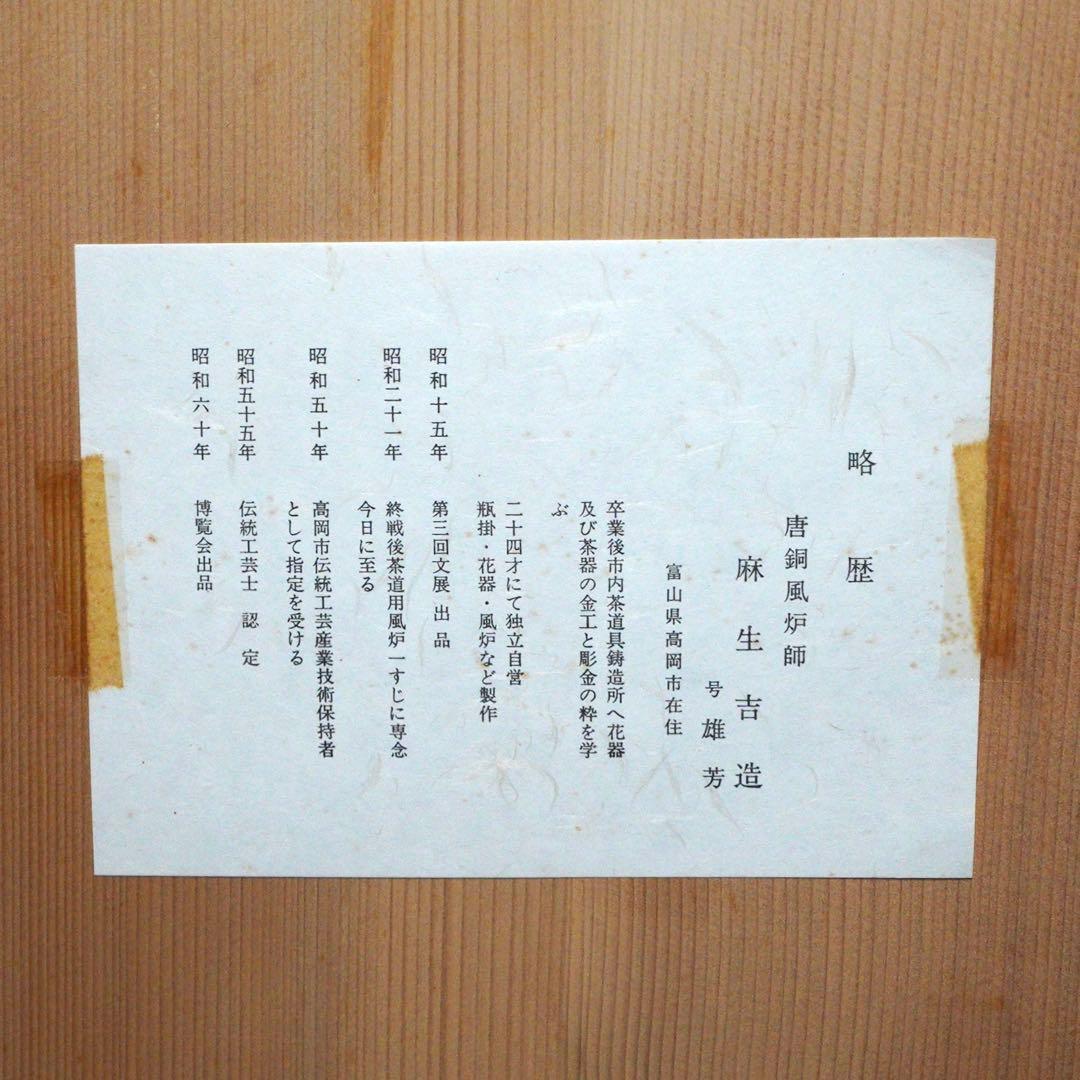 略歴
唐銅風炉師
麻生吉造
号 雄芳
富山県高岡市在住
卒業後市内茶道具鋳造所へ花器
及び茶器の金工と彫金の粋を学
ぶ
二十四才にて独立自営
瓶掛・花器・風炉など製作
昭和十五年 第三回文展出品
昭和二十一年 終戦後茶道用風炉一すじに専念
今日に至る
昭和五十年 高岡市伝統工芸産業技術保持者
として指定を受ける
昭和五十五年 伝統工芸士 認定
昭和六十年 博覧会出品